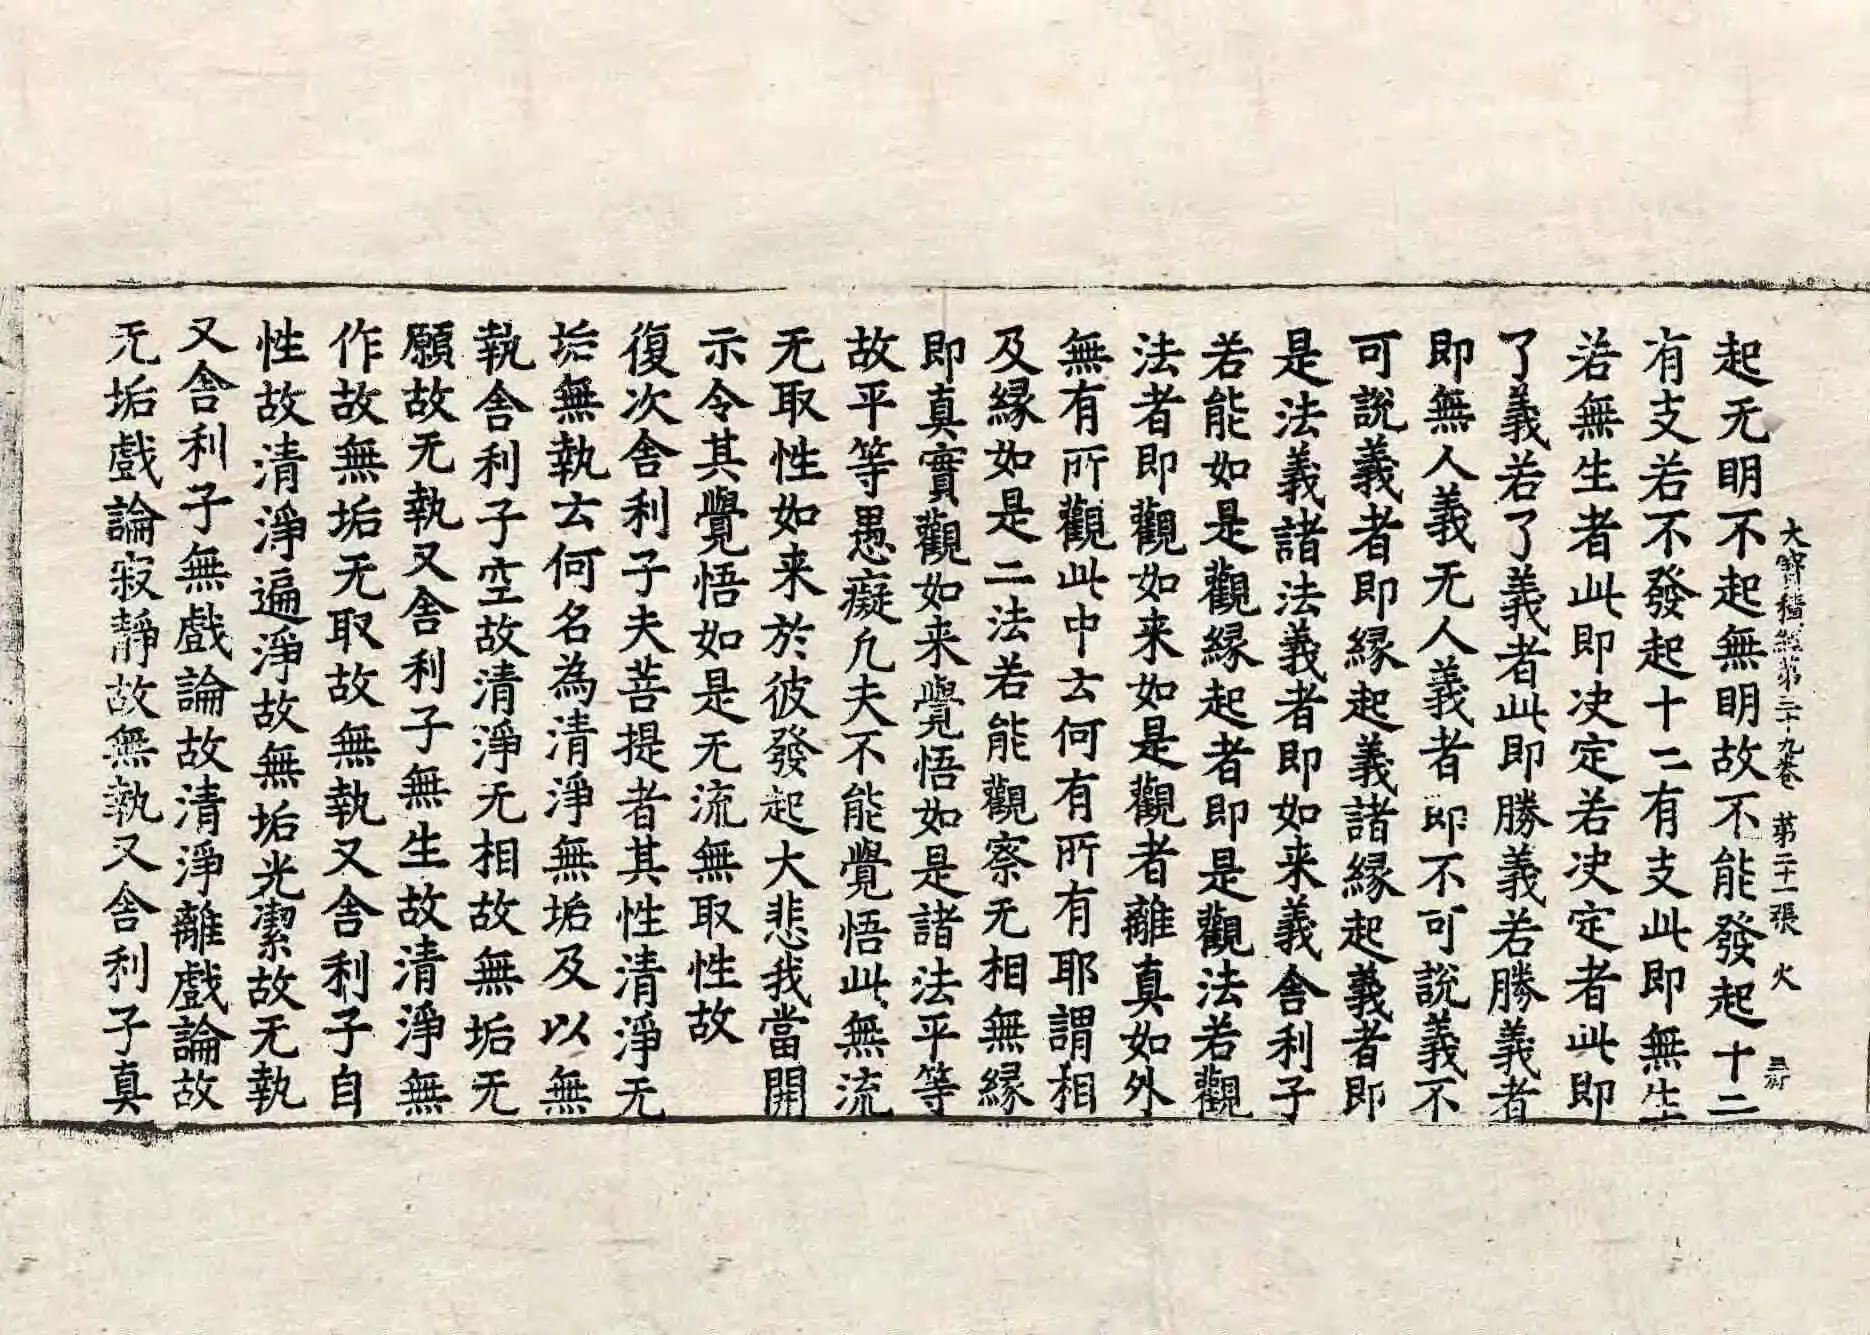 大寶積經第三十九卷 第二十一張 火
起无明不起無明故不能發起十二
有支若不發起十二有支此即無生
若無生者此即决定若决定者此即
了義若了義者此即勝義若勝義者
即無人義无人義者即不可說義不
可說義者即縁起義諸縁起義者即
是法義諸法義者即如来義舍利子
若能如是觀縁起者即是觀法若觀
法者即觀如来如是觀者離真如外
無有所觀此中云何有所有耶謂相
及縁如是二法若能觀察无相無縁
即真實觀如来覺悟如是諸法平等
故平等愚癡凢夫不能覺悟此無流
无取性如来於彼發起大悲我當開
示令其覺悟如是无流無取性故
復次舍利子夫菩提者其性清淨无
垢無執云何名為清淨無垢及以無
執舍利子空故清淨无相故無垢无
願故无執又舍利子無生故清淨無
作故無垢无取故無執又舍利子自
性故清淨遍淨故無垢光潔故无執
又舍利子無戲論故清淨離戲論故
无垢戲論寂靜故無執又舍利子真